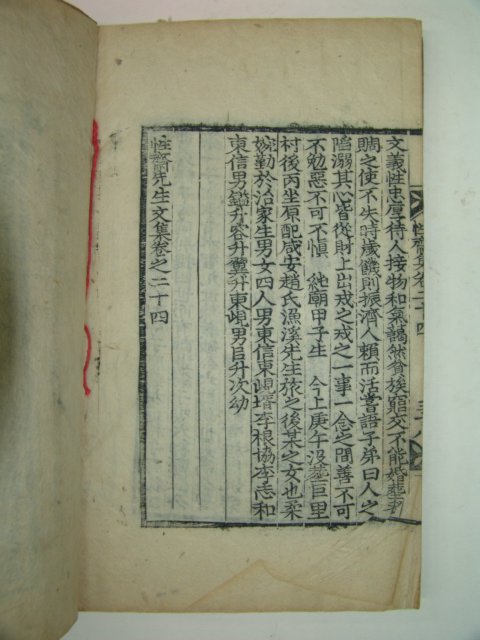 文義性忠厚待人接物和氣藹然貧族窮交不能婚葬者
賙之使不失時歲饑則振濟人賴而活嘗語子弟曰人之
陷溺其心皆從財上出戒之戒之一事一念之間善不可
不勉惡不可不愼 純廟甲子生 今上庚午沒葬巨里
村後丙坐原配咸安趙氏漁溪先生旅之後某之女也柔
婉勤於治家生男女四人男東信東峴壻李根協李志和
東信男鎰升容升翼升東峴男巨升次幼
性齋先生文集卷之二十四
性齋集卷二十四